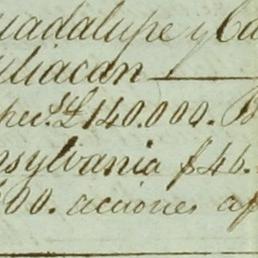 uadalupe y Ca
uliacan
pec. £ 140.000. B
nsylvania $46.
00. acciones af